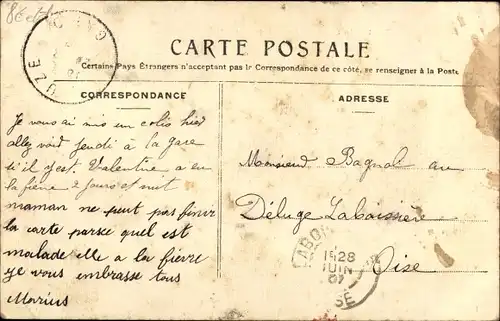 CARTE POSTALE
Certains Pays Étrangers n'acceptant pas le Correspondance de ce côté, se renseigner à la Poste
CORRESPONDANCE
ADRESSE
Je vous ai mis un colis hier
allez voir jeudi à la gare
si il yest. Valentine a eu
la fièvre 2 jours et nuit
maman ne peut pas finir
la carte parse quel est
malade elle a la fièvre
je vous embrasse tous
Marius
Monsieur Bagnol au
Déluge Laboissière
Oise
28
JUIN
07